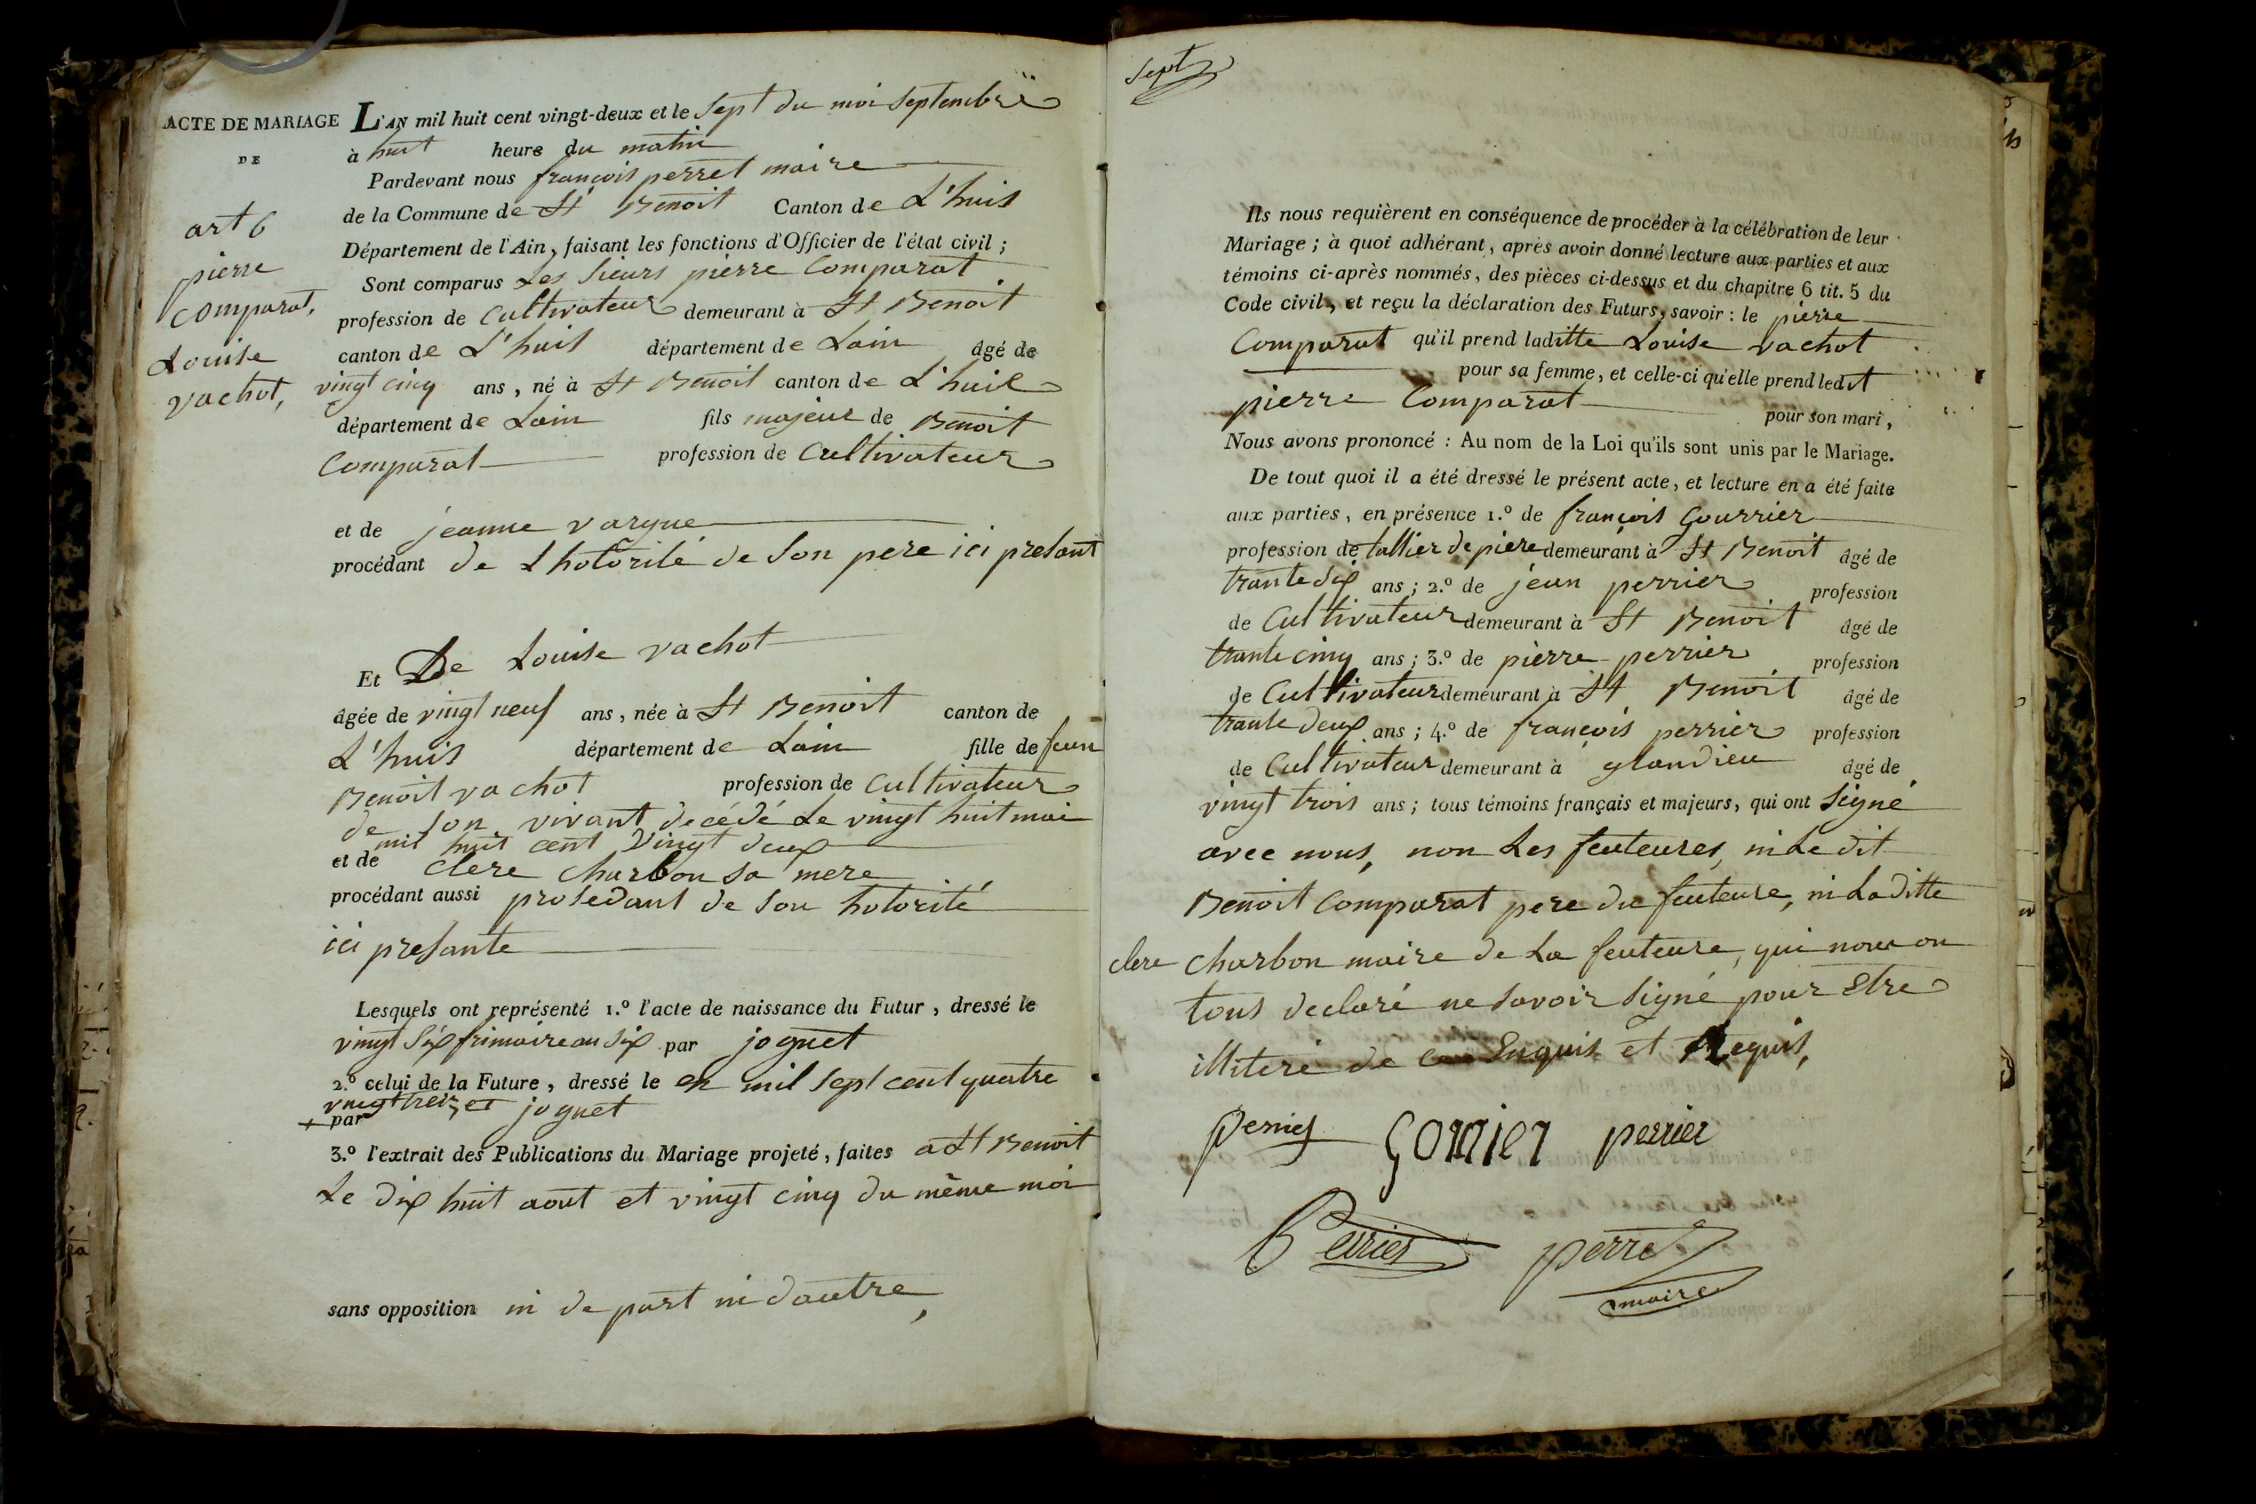 ACTE DE MARIAGE
DE
art 6
pierre
Comparat,
Louise
vachot,
L'AN mil huit cent vingt-deux et le sept du moi septembre
à huit heure du matin
Pardevant nous françois perret maire
de la Commune de St Benoit Canton de L'huis
Département de l'Ain, faisant les fonctions d'Officier de l'état civil ;
Sont comparus Les sieurs pierre Comparat
profession de Cultivateur demeurant à St Benoit
canton de L'huis département de Lain âgé de
vingt cinq ans, né à St Benoit canton de L'huis
département de Lain fils majeur de Benoit
Comparat profession de Cultivateur
et de jeanne
procédant de Lhotorité de son pere ici presant
Et De Louise vachot
âgée de vingt neuf ans, née à St Benoit canton de
L'huis département de Lain fille de
Benoit vachot profession de Cultivateur
de son vivant decédé Le vingt huit mai
mil huit cent vingt deux
et de clere charbon sa mere
procédant aussi prosedant de son hotorité
ici presante
Lesquels ont représenté 1.º l'acte de naissance du Futur, dressé le
vingt six frimaire an six par joguet
2.º celui de la Future, dressé le en mil sept cent quatre
vingt treize
+ par joguet
3.º l'extrait des Publications du Mariage projeté, faites a St Benoit
Le dix huit aout et vingt cinq du même moi
sans opposition ni de part ni dautre,
sept
Ils nous requièrent en conséquence de procéder à la célébration de leur
Mariage ; à quoi adhérant, après avoir donné lecture aux parties et aux
témoins ci-après nommés, des pièces ci-dessus et du chapitre 6 tit. 5 du
Code civil, et reçu la déclaration des Futurs, savoir : le pierre
Comparat qu'il prend laditte Louise vachot
pour sa femme, et celle-ci qu'elle prend ledit
pierre Comparat pour son mari,
Nous avons prononcé : Au nom de la Loi qu'ils sont unis par le Mariage.
De tout quoi il a été dressé le présent acte, et lecture en a été faite
aux parties, en présence 1.º de françois Gourrier
profession de tallier de piere demeurant à St Benoit âgé de
trante six ans ; 2.º de jean perrier profession
de Cultivateur demeurant à St Benoit âgé de
trante cinq ans ; 3.º de pierre perrier profession
de Cultivateur demeurant à St Benoit âgé de
trante deux ans ; 4.º de françois perrier profession
de Cultivateur demeurant à glandieu âgé de
vingt trois ans ; tous témoins français et majeurs, qui ont signé
avec nous, non Les feuteures, ni Le dit
Benoit Comparat pere du feuteure, ni Laditte
clere charbon maire de La feuteure, qui nous on
tous declaré ne savoir signé pour Etre
illiteré de ce Enquis et Requis,
perrier Gorrier perrier
Perrier perret
maire